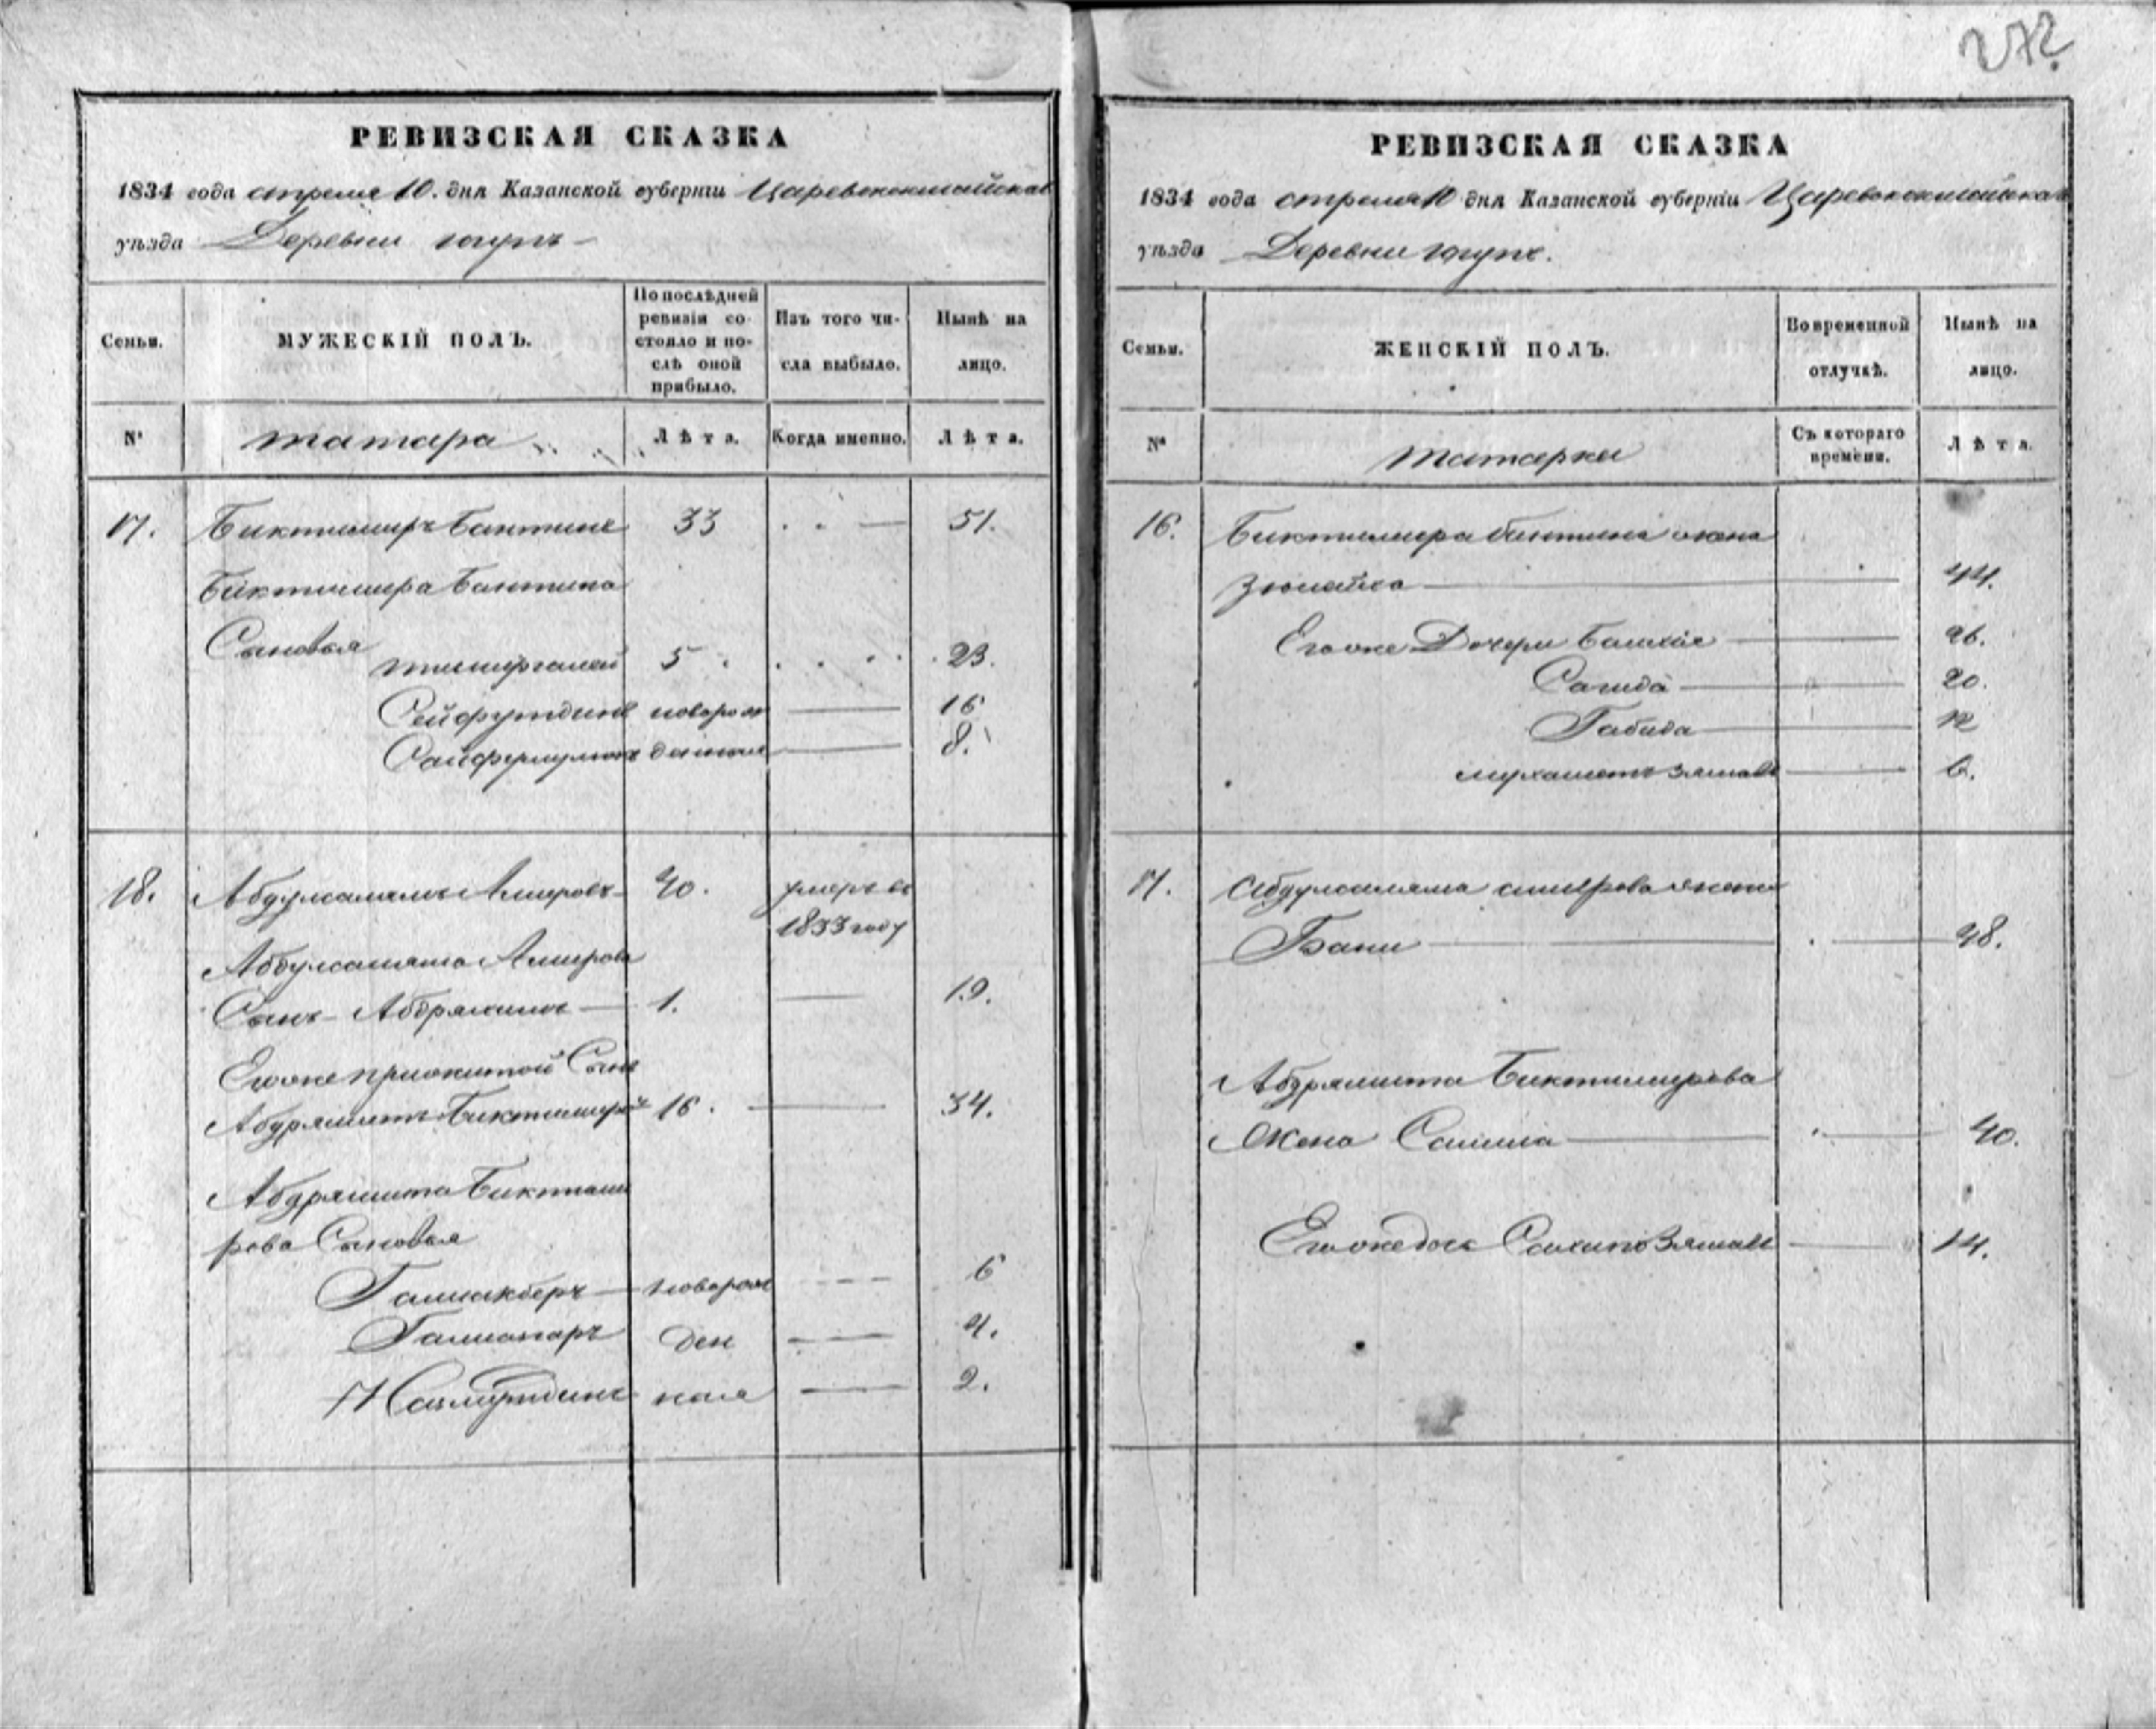 272
РЕВИЗСКАЯ СКАЗКА
1834 года апреля 10. дня Казанской губерніи Царевококшайскаго
уѣзда Деревни
Семьи.
МУЖЕСКІЙ ПОЛЪ.
По послѣдней ревизіи состояло и послѣ оной прибыло.
Изъ того числа выбыло.
Нынѣ на лицо.
№
татара
Лѣта.
Когда именно.
Лѣта.
17. Биктимиръ Бактинъ 33 51.
Биктимира Бактина
Сыновья
Тимиргалей 5 23.
Сейфутдинъ новорож 16
Сайфермулюкъ денныя 8.
18. Абдулсалямъ Амировъ 40. умеръ въ
1833 году
Абдулсаляма Амирова
Сынъ Абдряхимъ 1. 19.
Егоже приюмитой Сынъ
Абдряшитъ Биктимировъ 16. 34.
Абдряшита Биктими
рова Сыновья
Галиакберъ новорож 6
Галиасгаръ ден 4.
ныя 2.
РЕВИЗСКАЯ СКАЗКА
1834 года апреля 10 дня Казанской губерніи Царевококшайскаго
уѣзда Деревни
Семьи.
ЖЕНСКІЙ ПОЛЪ.
Во временной отлучкѣ.
Нынѣ на лицо.
№
татарки
Съ котораго времени.
Лѣта.
16. Биктимира Бактина жена
Зюлейха 44.
Егоже Дочери 26.
Сагида 20.
Габида 12
Мухаметзямал 6.
17. Абдулсаляма Амирова жена
Бани 48.
Абдряшита Биктимирова
Жена Салима 40.
Егоже дочь Сахипзямал 14.